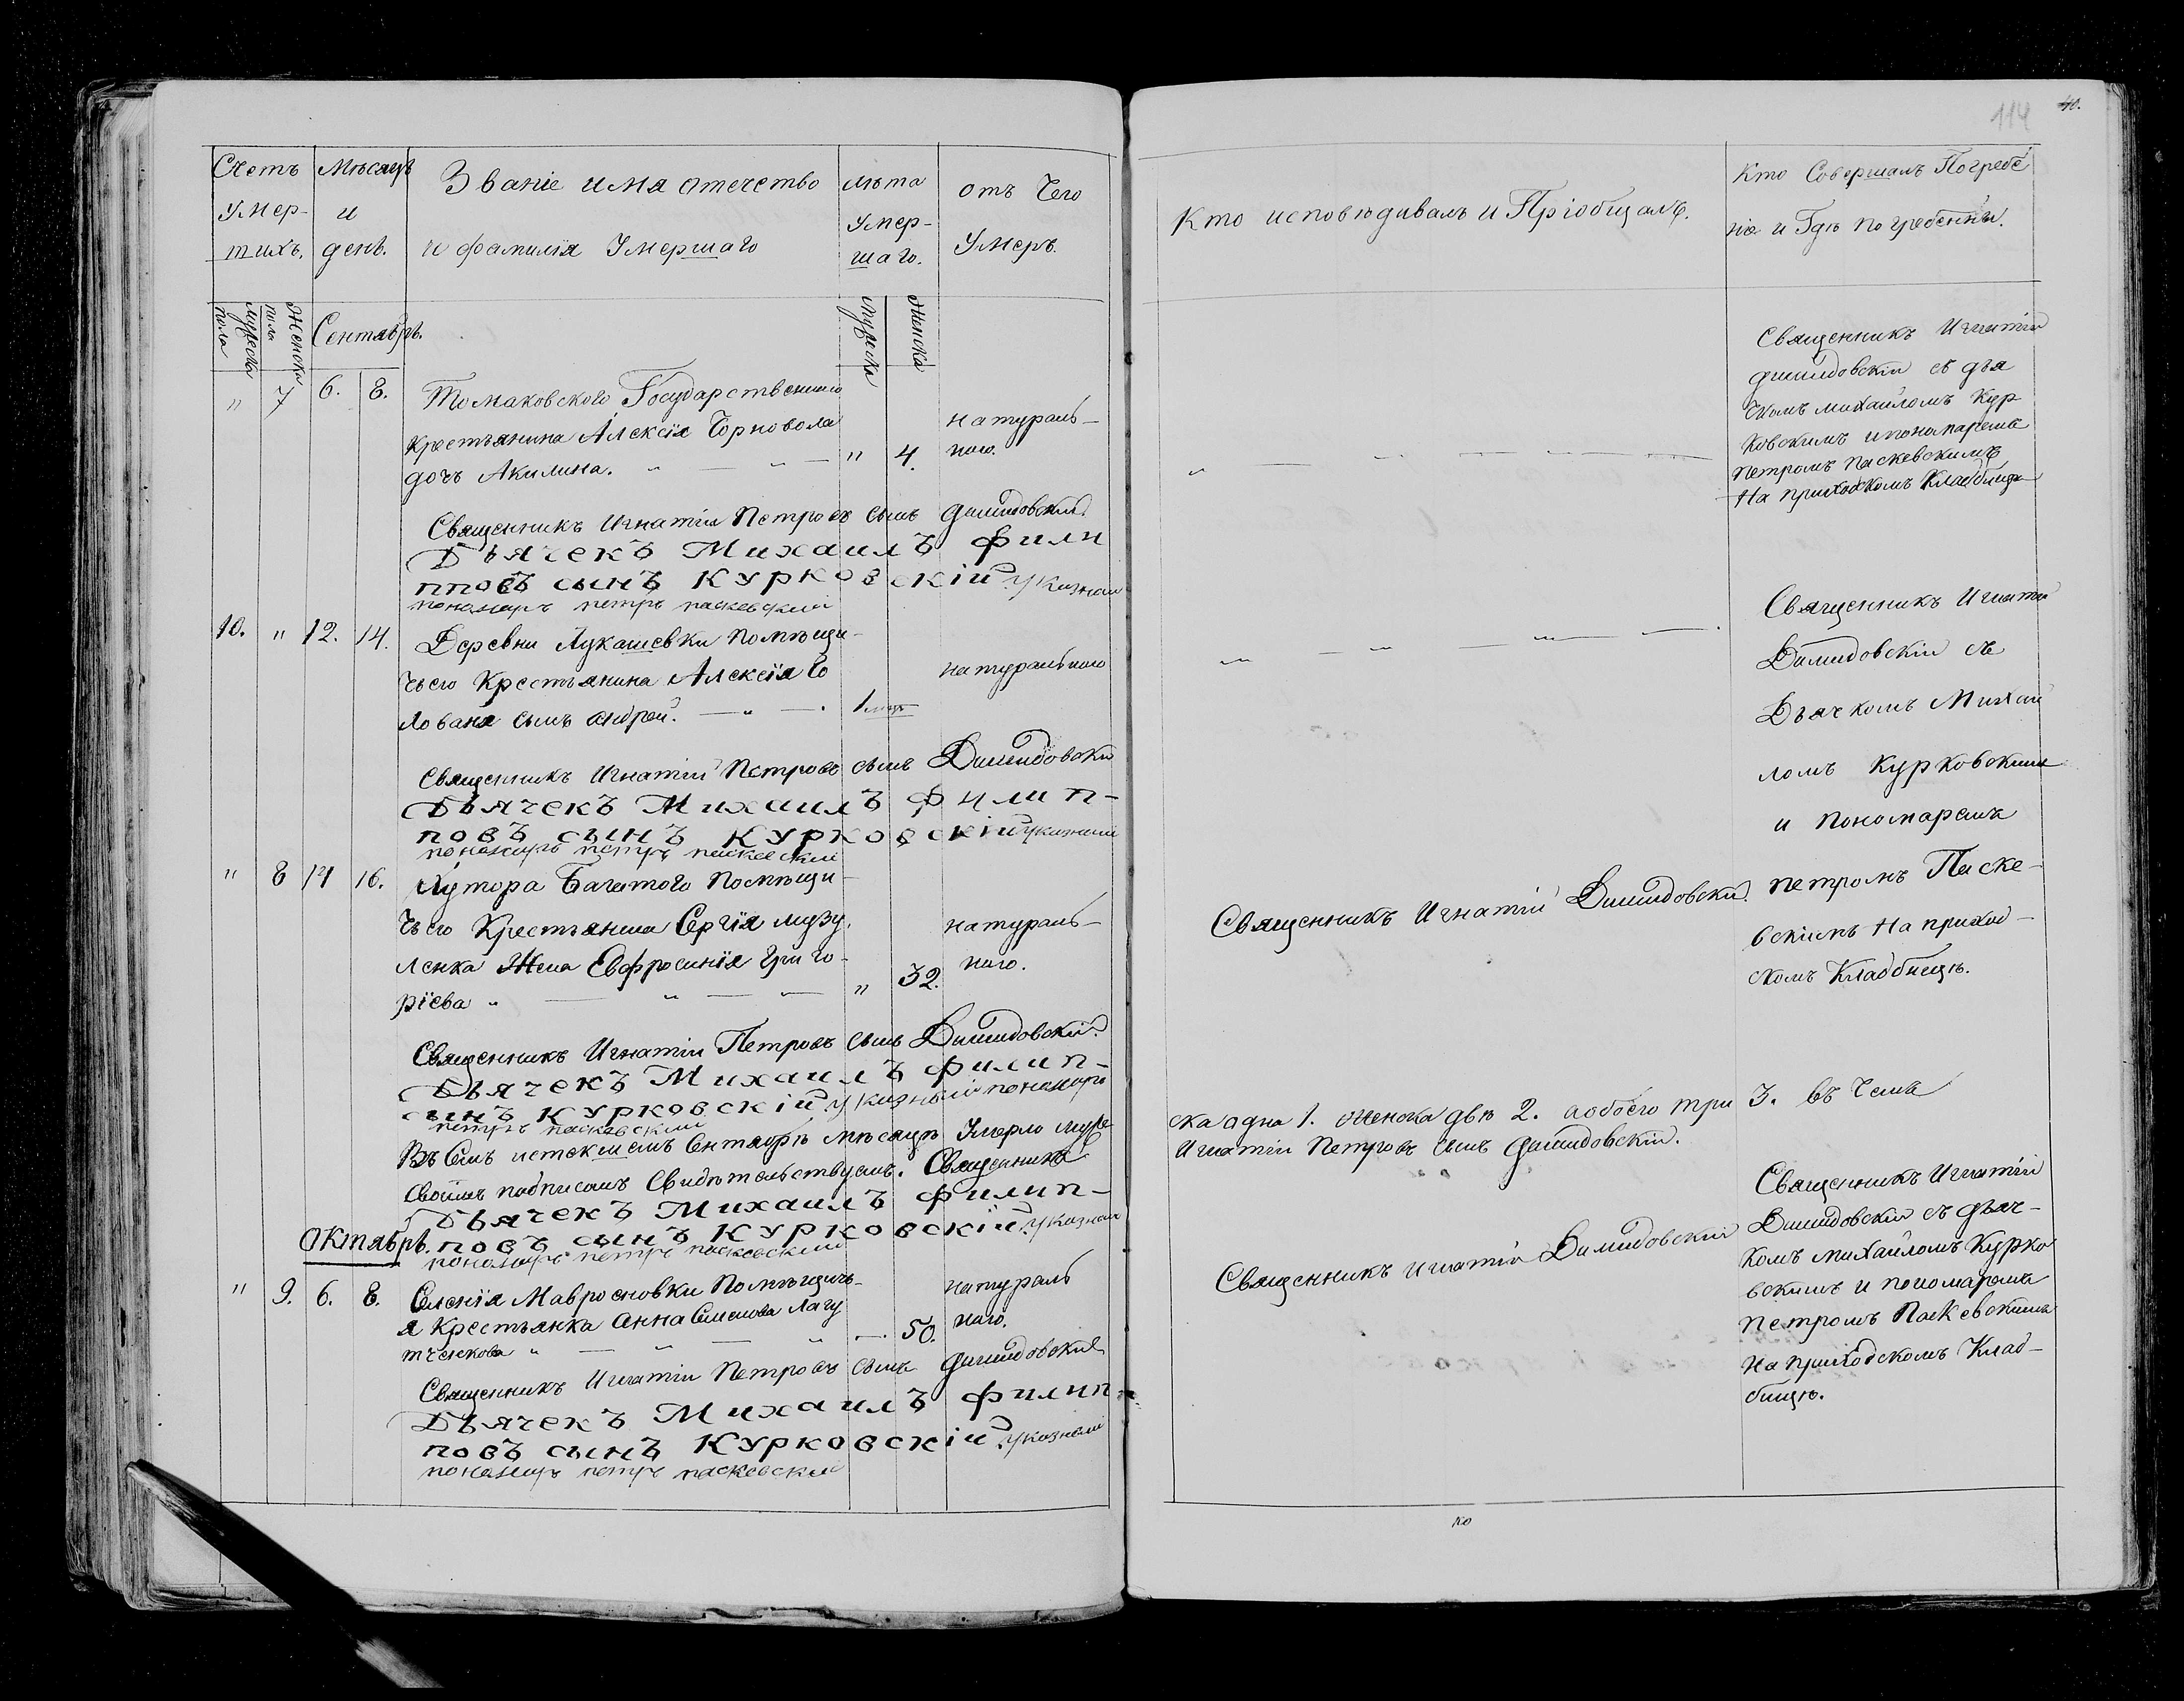 Счетъ
Умер-
шихъ.
Мѣсяцъ
и
день.
Званіе имя отечество
и фамилія Умершаго
лѣта
Умер-
шаго.
отъ Чего
Умеръ.
мужеска
пола
Женска
пола
Сентябрь.
мужеска
Женска
" 7 6. 8. Томаковского Государственного
крестьянина Алексія Чорновола
дочь Акилина. " 4.
натураль-
ного.
Священникъ Игнатій Петровъ сынъ Димидовскій.
Дьячекъ Михаилъ Фили
пповъ сынъ Курковскій указной
пономаръ петръ паскевскій
10. " 12. 14. Деревни Лукашевки помѣщи-
чьего Крестьянина Алексія Го
лованя сынъ андрей. 1 мѣс
натурального
Священникъ Игнатій Петровъ сынъ Димидовскій
Дьячекъ Михаилъ Филип-
повъ сынъ Курковскій указний
пономаръ петръ паскевскій
" 8 14 16. Хутора Багатого Помѣщи-
чьего Крестьянина Сергія Музу.
ленка Жена Евфросинія Григо-
ріева " " 32.
натураль-
ного.
Священникъ Игнатій Петровъ сынъ Димидовскій.
Дьячекъ Михаилъ Филип-
сынъ Курковскій указный пономаръ
петръ паскевскій
Въ семъ истекшемъ Сентябрѣ мѣсяцѣ Умерло муже
своимъ подписомъ Свидѣтельствуемъ. Священникъ
Дьячекъ Михаилъ Филип-
Октябрь. повъ сынъ Курковскій указной
пономаръ петръ паскевскій
" 9. 6. 8. Селенія Мавросновки Помѣщичь-
я Крестьянка Анна Семенова Лагу
тченкова " 50.
натураль
ного.
Священникъ Игнатій Петровъ сынъ Димидовскій
Дьячекъ Михаилъ Филип-
повъ сынъ Курковскій указный
пономаръ петръ паскевскій
114 40.
Кто исповѣдивалъ и Пріобщалъ.
Кто Совершалъ Погребе
ніе и Гдѣ погребенны.
Священникъ Игнатій
димидовскій съ дья
чкомъ михайломъ Кур
ковскимъ и пономаремъ
петромъ паскевскимъ
На приходскомъ Кладбищѣ
Священникъ Игнатій
Димидовскій съ
Дьячкомъ Михай
ломъ Курковскимъ
и пономаремъ
Священникъ Игнатій Димидовскій.
петромъ Паске-
вскимъ На приход-
скомъ Кладбищѣ.
ска одна 1. женска двѣ 2. а обоего три 3. въ чемъ
Игнатій Петровъ сынъ Димидовскій.
Священникъ Игнатій Димидовскій
Священникъ Игнатій
Димидовскій съ дьяч-
комъ михайломъ Курко
вскимъ и пономаремъ
петромъ Паскевскимъ
На приходскомъ Клад-
бищѣ.
ко